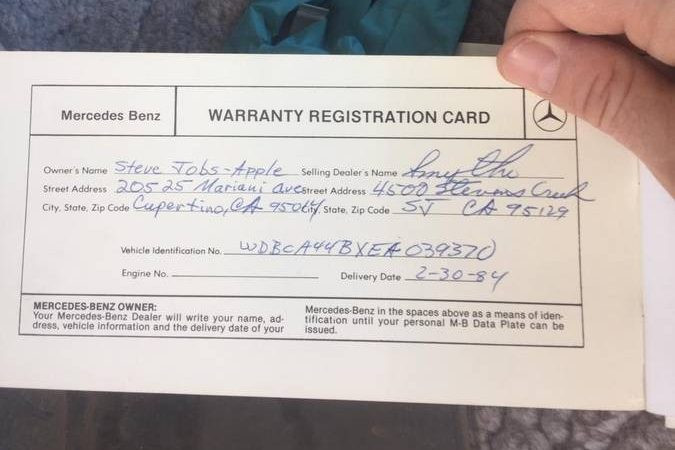 Mercedes Benz WARRANTY REGISTRATION CARD
Owner's Name Steve Jobs-Apple Selling Dealer's Name Smythe
Street Address 20525 Mariani Ave Street Address 4500 Stevens Creek
City, State, Zip Code Cupertino, CA 95014 City, State, Zip Code SJ CA 95129
Vehicle Identification No. WDBCA44BXEA039370
Engine No. Delivery Date 2-30-84
MERCEDES-BENZ OWNER:
Your Mercedes-Benz Dealer will write your name, ad-
dress, vehicle information and the delivery date of your
Mercedes-Benz in the spaces above as a means of iden-
tification until your personal M-B Data Plate can be
issued.